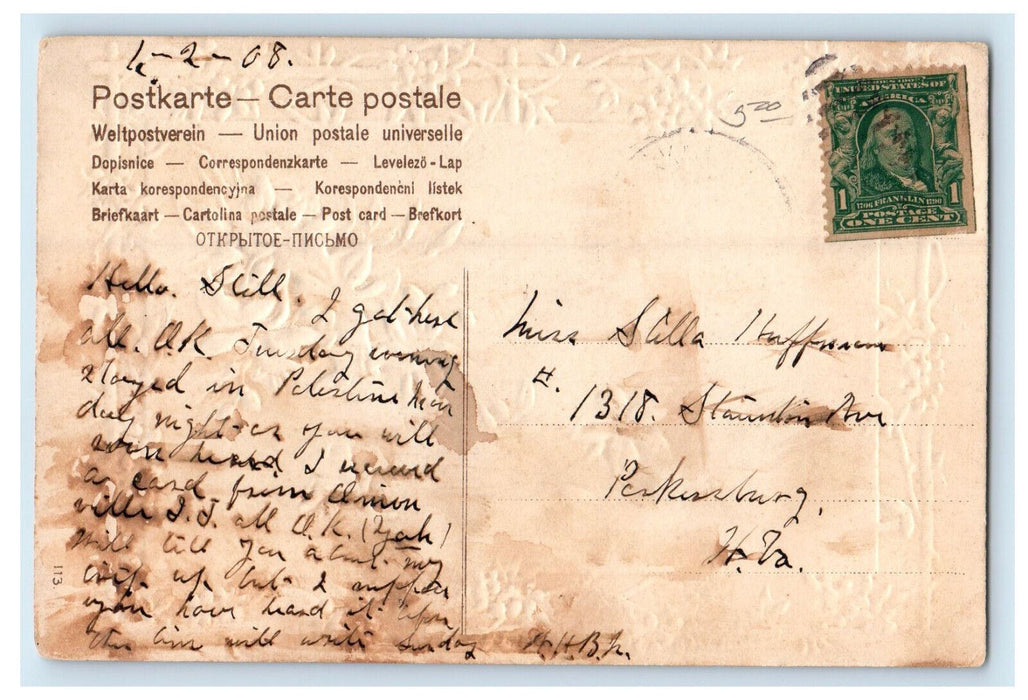 1-2-08.
Postkarte — Carte postale
Weltpostverein — Union postale universelle
Dopisnice — Correspondenzkarte — Levelező-Lap
Karta korespondencyjna — Korespondenční lístek
Briefkaart — Cartolina postale — Post card — Brefkort
ОТКРЫТОЕ-ПИСЬМО
Hello. Still.
I got here
all. O.K Tuesday evening
stayed in Palestine
day night as you will
heard I received
a card from Union
ville I.T. all O.K. (Yah)
will tell you about my
trip up but I suppose
you have heard it
will write Sunday H.H.B.Jr.
113
500
SERIES 1902
UNITED STATES OF
AMERICA
1706 FRANKLIN 1790
1 POSTAGE 1
ONE CENT
Miss Stilla Hoffman
#. 1318. Staunton Ave
Parkersburg,
W.Va.